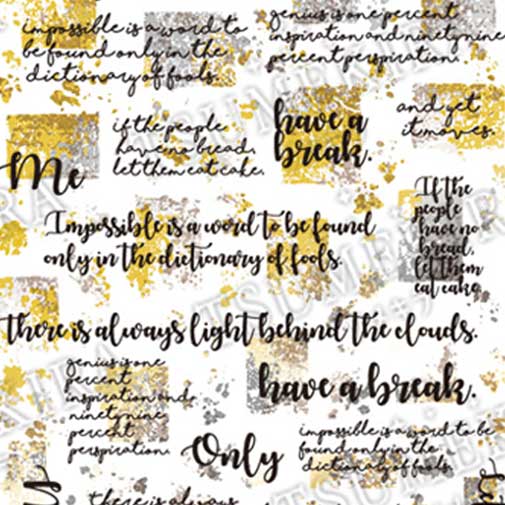 impossible is a word to
be found only in the
dictionary of fools.
genius is one percent
inspiration and ninety nine
percent perspiration.
if the people
have no bread,
let them eat cake.
have a
break.
and yet
it moves.
Me
If the
people
have no
bread,
let them
eat cake
Impossible is a word to be found
only in the dictionary of fools.
there is always light behind the clouds.
genius is one
percent
inspiration and
ninety nine
percent
perspiration.
have a break.
Only
impossible is a word to be
found only in the
dictionary of fools.
there is always